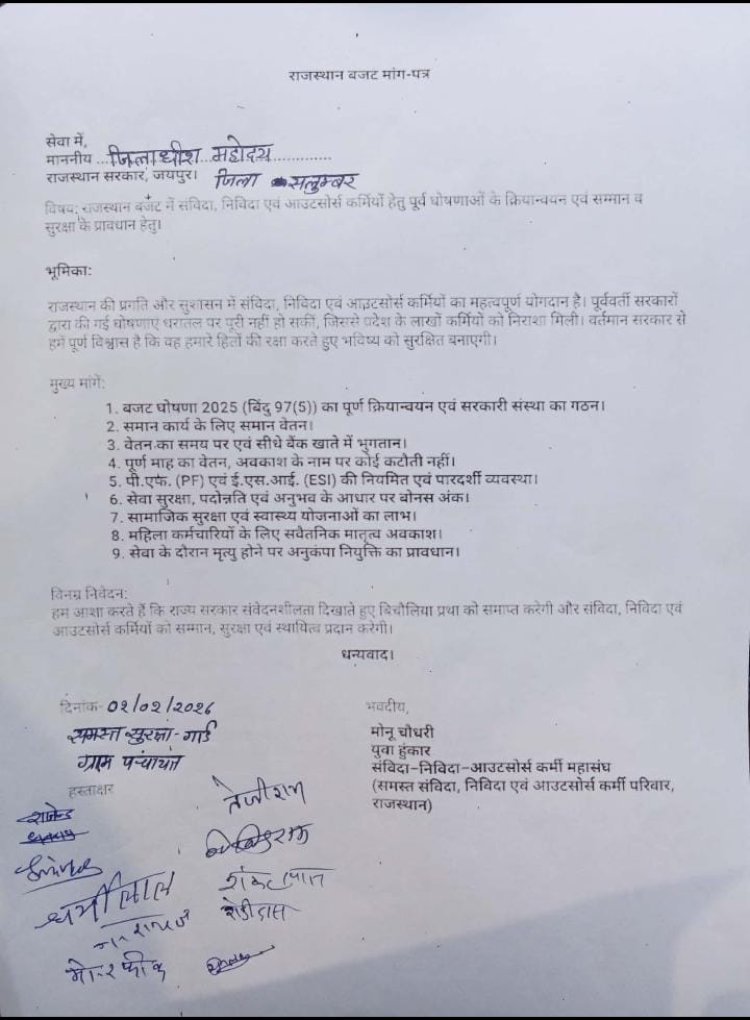 राजस्थान बजट मांग-पत्र
सेवा में,
माननीय ...जिलाधीश...महोदय.............
राजस्थान सरकार, जयपुर। जिला सलुम्बर
विषय: राजस्थान बजट में संविदा, निविदा एवं आउटसोर्स कर्मियों हेतु पूर्व घोषणाओं के क्रियान्वयन एवं सम्मान व
सुरक्षा के प्रावधान हेतु।
भूमिका:
राजस्थान की प्रगति और सुशासन में संविदा, निविदा एवं आउटसोर्स कर्मियों का महत्वपूर्ण योगदान है। पूर्ववर्ती सरकारों
द्वारा की गई घोषणाएं धरातल पर पूरी नहीं हो सकीं, जिससे प्रदेश के लाखों कर्मियों को निराशा मिली। वर्तमान सरकार से
हमें पूर्ण विश्वास है कि वह हमारे हितों की रक्षा करते हुए भविष्य को सुरक्षित बनाएगी।
मुख्य मांगें:
1. बजट घोषणा 2025 (बिंदु 97(5)) का पूर्ण क्रियान्वयन एवं सरकारी संस्था का गठन।
2. समान कार्य के लिए समान वेतन।
3. वेतन का समय पर एवं सीधे बैंक खाते में भुगतान।
4. पूर्ण माह का वेतन, अवकाश के नाम पर कोई कटौती नहीं।
5. पी.एफ. (PF) एवं ई.एस.आई. (ESI) की नियमित एवं पारदर्शी व्यवस्था।
6. सेवा सुरक्षा, पदोन्नति एवं अनुभव के आधार पर बोनस अंक।
7. सामाजिक सुरक्षा एवं स्वास्थ्य योजनाओं का लाभ।
8. महिला कर्मचारियों के लिए सवैतनिक मातृत्व अवकाश।
9. सेवा के दौरान मृत्यु होने पर अनुकंपा नियुक्ति का प्रावधान।
विनम्र निवेदन:
हम आशा करते हैं कि राज्य सरकार संवेदनशीलता दिखाते हुए बिचौलिया प्रथा को समाप्त करेगी और संविदा, निविदा एवं
आउटसोर्स कर्मियों को सम्मान, सुरक्षा एवं स्थायित्व प्रदान करेगी।
धन्यवाद।
दिनांक- 02/02/2026
समस्त सुरक्षा-गार्ड
ग्राम पंचायत
हस्ताक्षर
भवदीय,
मोनू चौधरी
युवा हुंकार
संविदा-निविदा-आउटसोर्स कर्मी महासंघ
(समस्त संविदा, निविदा एवं आउटसोर्स कर्मी परिवार,
राजस्थान)